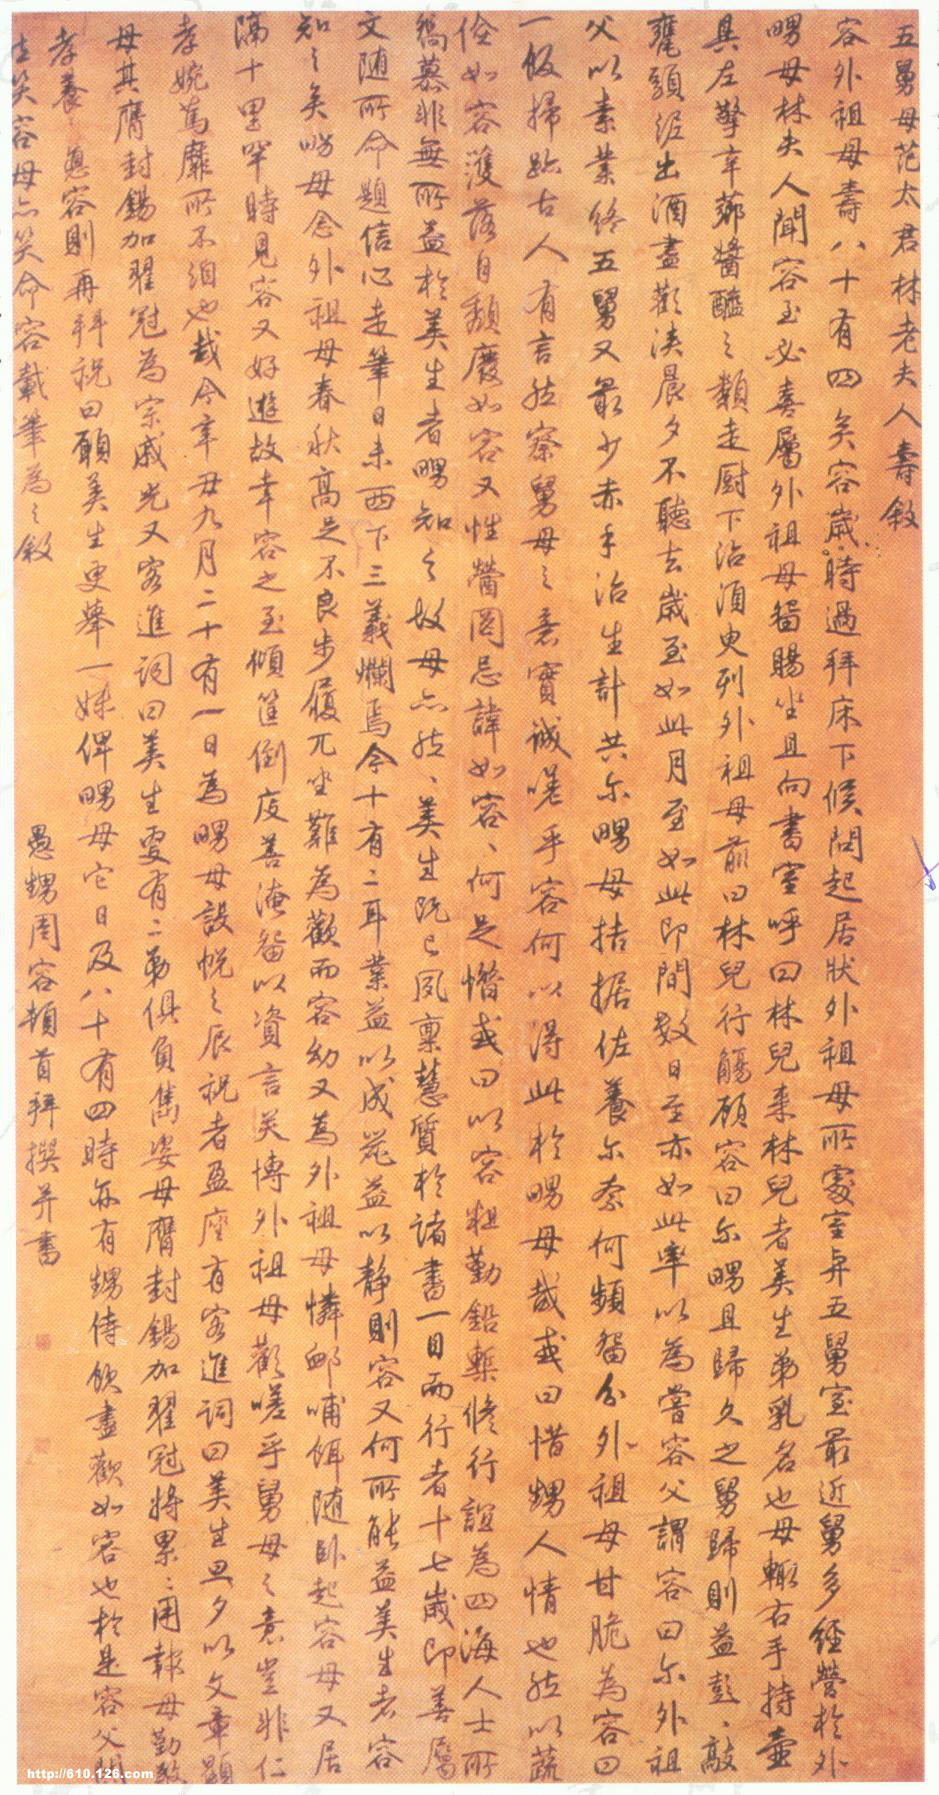 五舅母范太君林老夫人壽敘
容外祖母壽八十有四矣容歲時過拜床下候問起居狀外祖母所處室與五舅室最近舅多經營於外
甥母林夫人聞容至必喜屬外祖母留賜坐且向書室呼曰林兒來林兒者美生弟乳名也母輒右手持壺
具左擎辛薌醬醢之類走厨下治須臾列外祖母前曰林兒行觴顧容曰尔甥且歸久之舅歸則益彭彭敲
甕頭經出酒盡歡浹晨夕不聽去歲至如此月至如此即間數日至亦如此率以為嘗容父謂容曰尔外祖
父以素業終五舅又最少赤手治生計共尔甥母拮据佐養尔奈何頻留分外祖母甘脆為容曰
一飯掃跡古人有言然察舅母之意實誠嗟乎容何以得此於甥母哉或曰惜甥人情也然以蔬
俭如容濩落自頹廢如容又性簪罔忌諱如容容何足惜或曰以容粗勤鉛槧修行誼為四海人士所
稿慕非無所益於美生者甥知之故母亦然然美生既已夙稟慧質於諸書一目而行者十七歲即善屬
文随所命題信心走筆日未西下三義爛焉今十有二耳業益以成能益以静則容又何所能益美生者容
知之矣甥母念外祖母春秋高足不良步履兀坐難為歡而容幼又為外祖母憐卹哺餌随卧起容母又居
滴十里罕時見容又好遊故幸容之至傾筐倒庋善淹留以資言笑博外祖母歡嗟乎舅母之意豈非仁
孝婉篤靡所不洎也哉今辛丑九月二十有一日為甥母設帨之辰祝者盈座有客進詞曰美生旦夕以文章顯
母其膺封錫加翟冠為宗戚光又客進詞曰美生更有二弟俱負雋姿母膺封錫加翟冠將累累用報母勤效
孝養養憲容則再拜祝曰願美生更舉一妹俾甥母它日及八十有四時亦有甥侍飲盡歡如容也於是容父聞
之笑容母亦笑命容載筆為之敘
愚甥周容頓首拜撰并書
http://610.126.com/